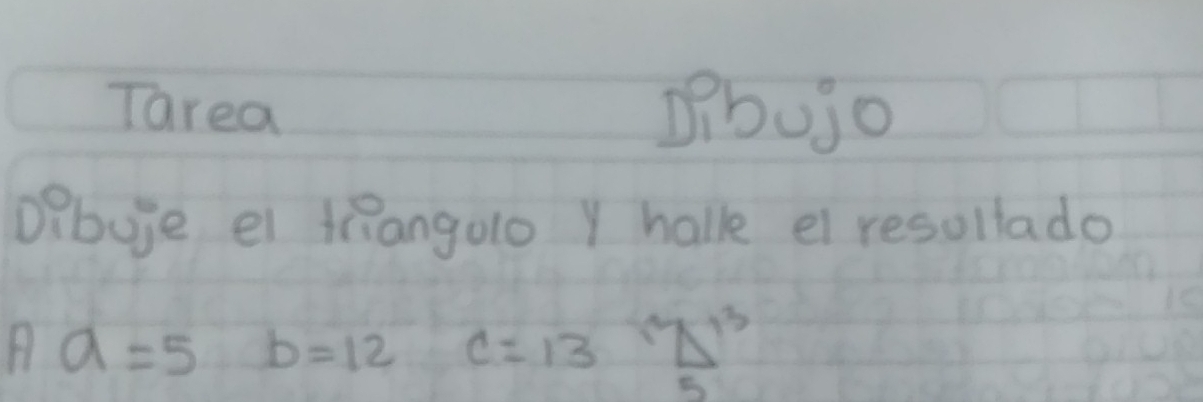 Tarea Dibujo
Dibuje el triangulo y halle el resultado
A a=5 b=12 c=13 12 13
5